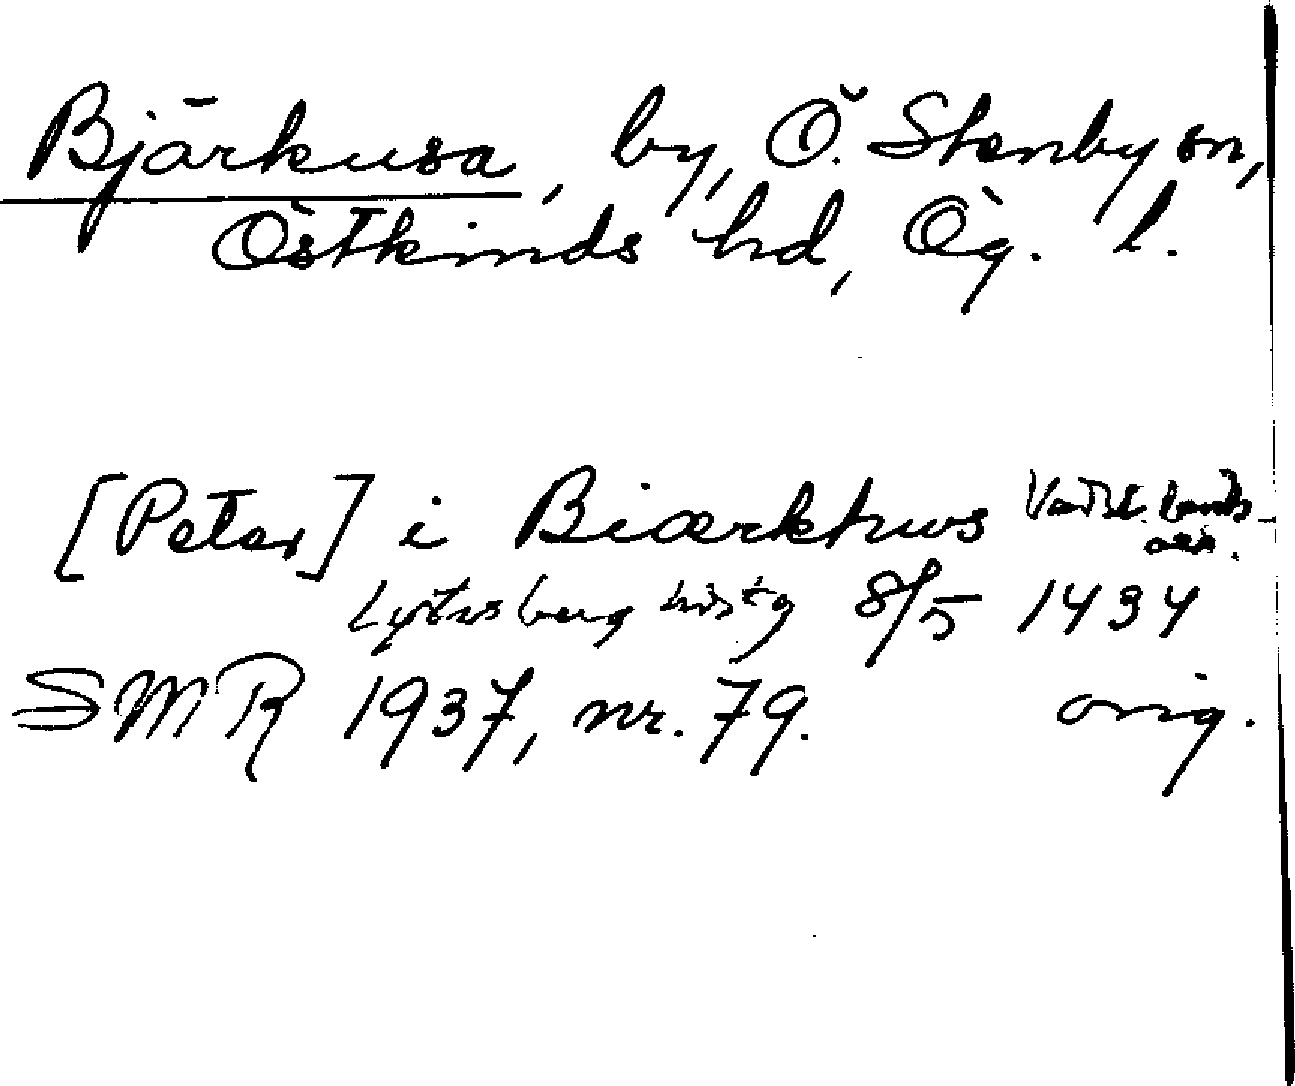 Bjärkusa, by, Ö. Stenby sn,
Östkinds hd, Ög. l.
[Peter] i Biærkhws Vadst. lands-
ark.
8/5 1434
SMR 1937, nr. 79. orig.